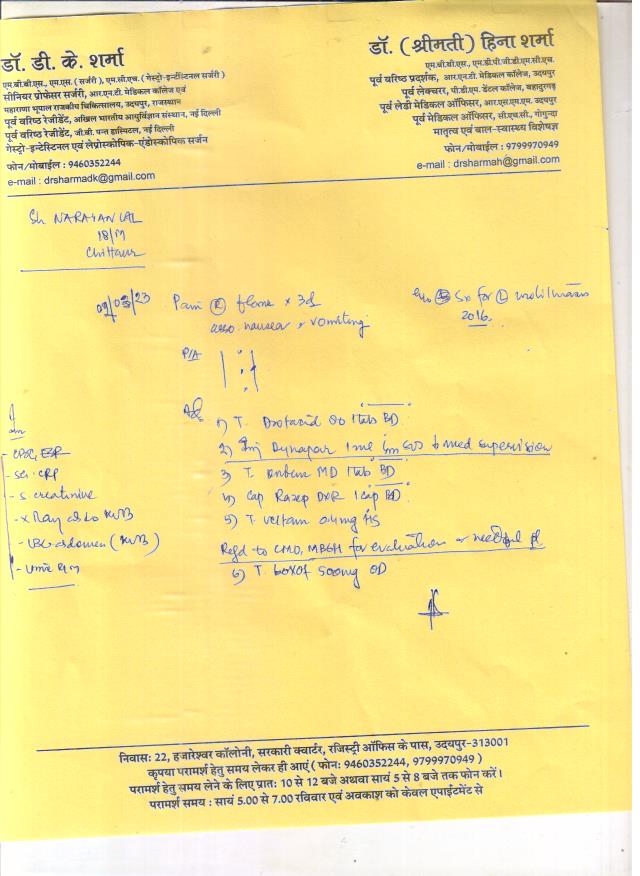 डॉ. डी. के. शर्मा
एम.बी.बी.एस., एम.एस. (सर्जरी), एम.सी.एच. (गेस्ट्रो-इन्टेस्टिनल सर्जरी)
सीनियर प्रोफेसर सर्जरी, आर.एन.टी. मेडिकल कॉलेज एवं
महाराणा भूपाल राजकीय चिकित्सालय, उदयपुर, राजस्थान
पूर्व वरिष्ठ रेजीडेंट, अखिल भारतीय आयुर्विज्ञान संस्थान, नई दिल्ली
पूर्व वरिष्ठ रेजीडेंट, जी.बी. पन्त हास्पिटल, नई दिल्ली
गेस्ट्रो-इन्टेस्टिनल एवं लेप्रोस्कोपिक-एंडोस्कोपिक सर्जन
फोन/मोबाईल : 9460352244
e-mail : drsharmadk@gmail.com
डॉ. (श्रीमती) हिना शर्मा
एम.बी.बी.एस., एम.डी.पी.जी.डी.एम.सी.एच.
पूर्व वरिष्ठ प्रदर्शक, आर.एन.टी. मेडिकल कॉलेज, उदयपुर
पूर्व लेक्चरर, पी.डी.एम. डेंटल कॉलेज, बहादुरगढ़
पूर्व लेडी मेडिकल ऑफिसर, आर.एस.एम.एम. उदयपुर
पूर्व मेडिकल ऑफिसर, सी.एच.सी., गोगुन्दा
मातृत्व एवं बाल-स्वास्थ्य विशेषज्ञ
फोन/मोबाईल : 9799970949
e-mail : drsharmah@gmail.com
Sh NARAYAN LAL
18/M
Chittaur
09/03/23 Pain R flank x 3d
asso. nausea & vomiting
Sx for L
2016
P/A
Adv
1) T. Drotacid 80 1 tab BD
2) Inj Dynapar 1 ml im med supervision
3) T. MD 1 tab BD
4) Cap Razep DXR 1 cap BD
5) T. Veltam 0.4mg HS
Refd to CMO, MBGH for evaluation & needful pl
6) T. 500mg OD
- CBC, ESR
- CRP
- S. creatinine
- X Ray abdo KUB
- USG abdomen (KUB)
- Urine R/M
निवास: 22, हजारेश्वर कॉलोनी, सरकारी क्वार्टर, रजिस्ट्री ऑफिस के पास, उदयपुर-313001
कृपया परामर्श हेतु समय लेकर ही आएं ( फोन: 9460352244, 9799970949 )
परामर्श हेतु समय लेने के लिए प्रात: 10 से 12 बजे अथवा सायं 5 से 8 बजे तक फोन करें।
परामर्श समय : सायं 5.00 से 7.00 रविवार एवं अवकाश को केवल एपाईंटमेंट से